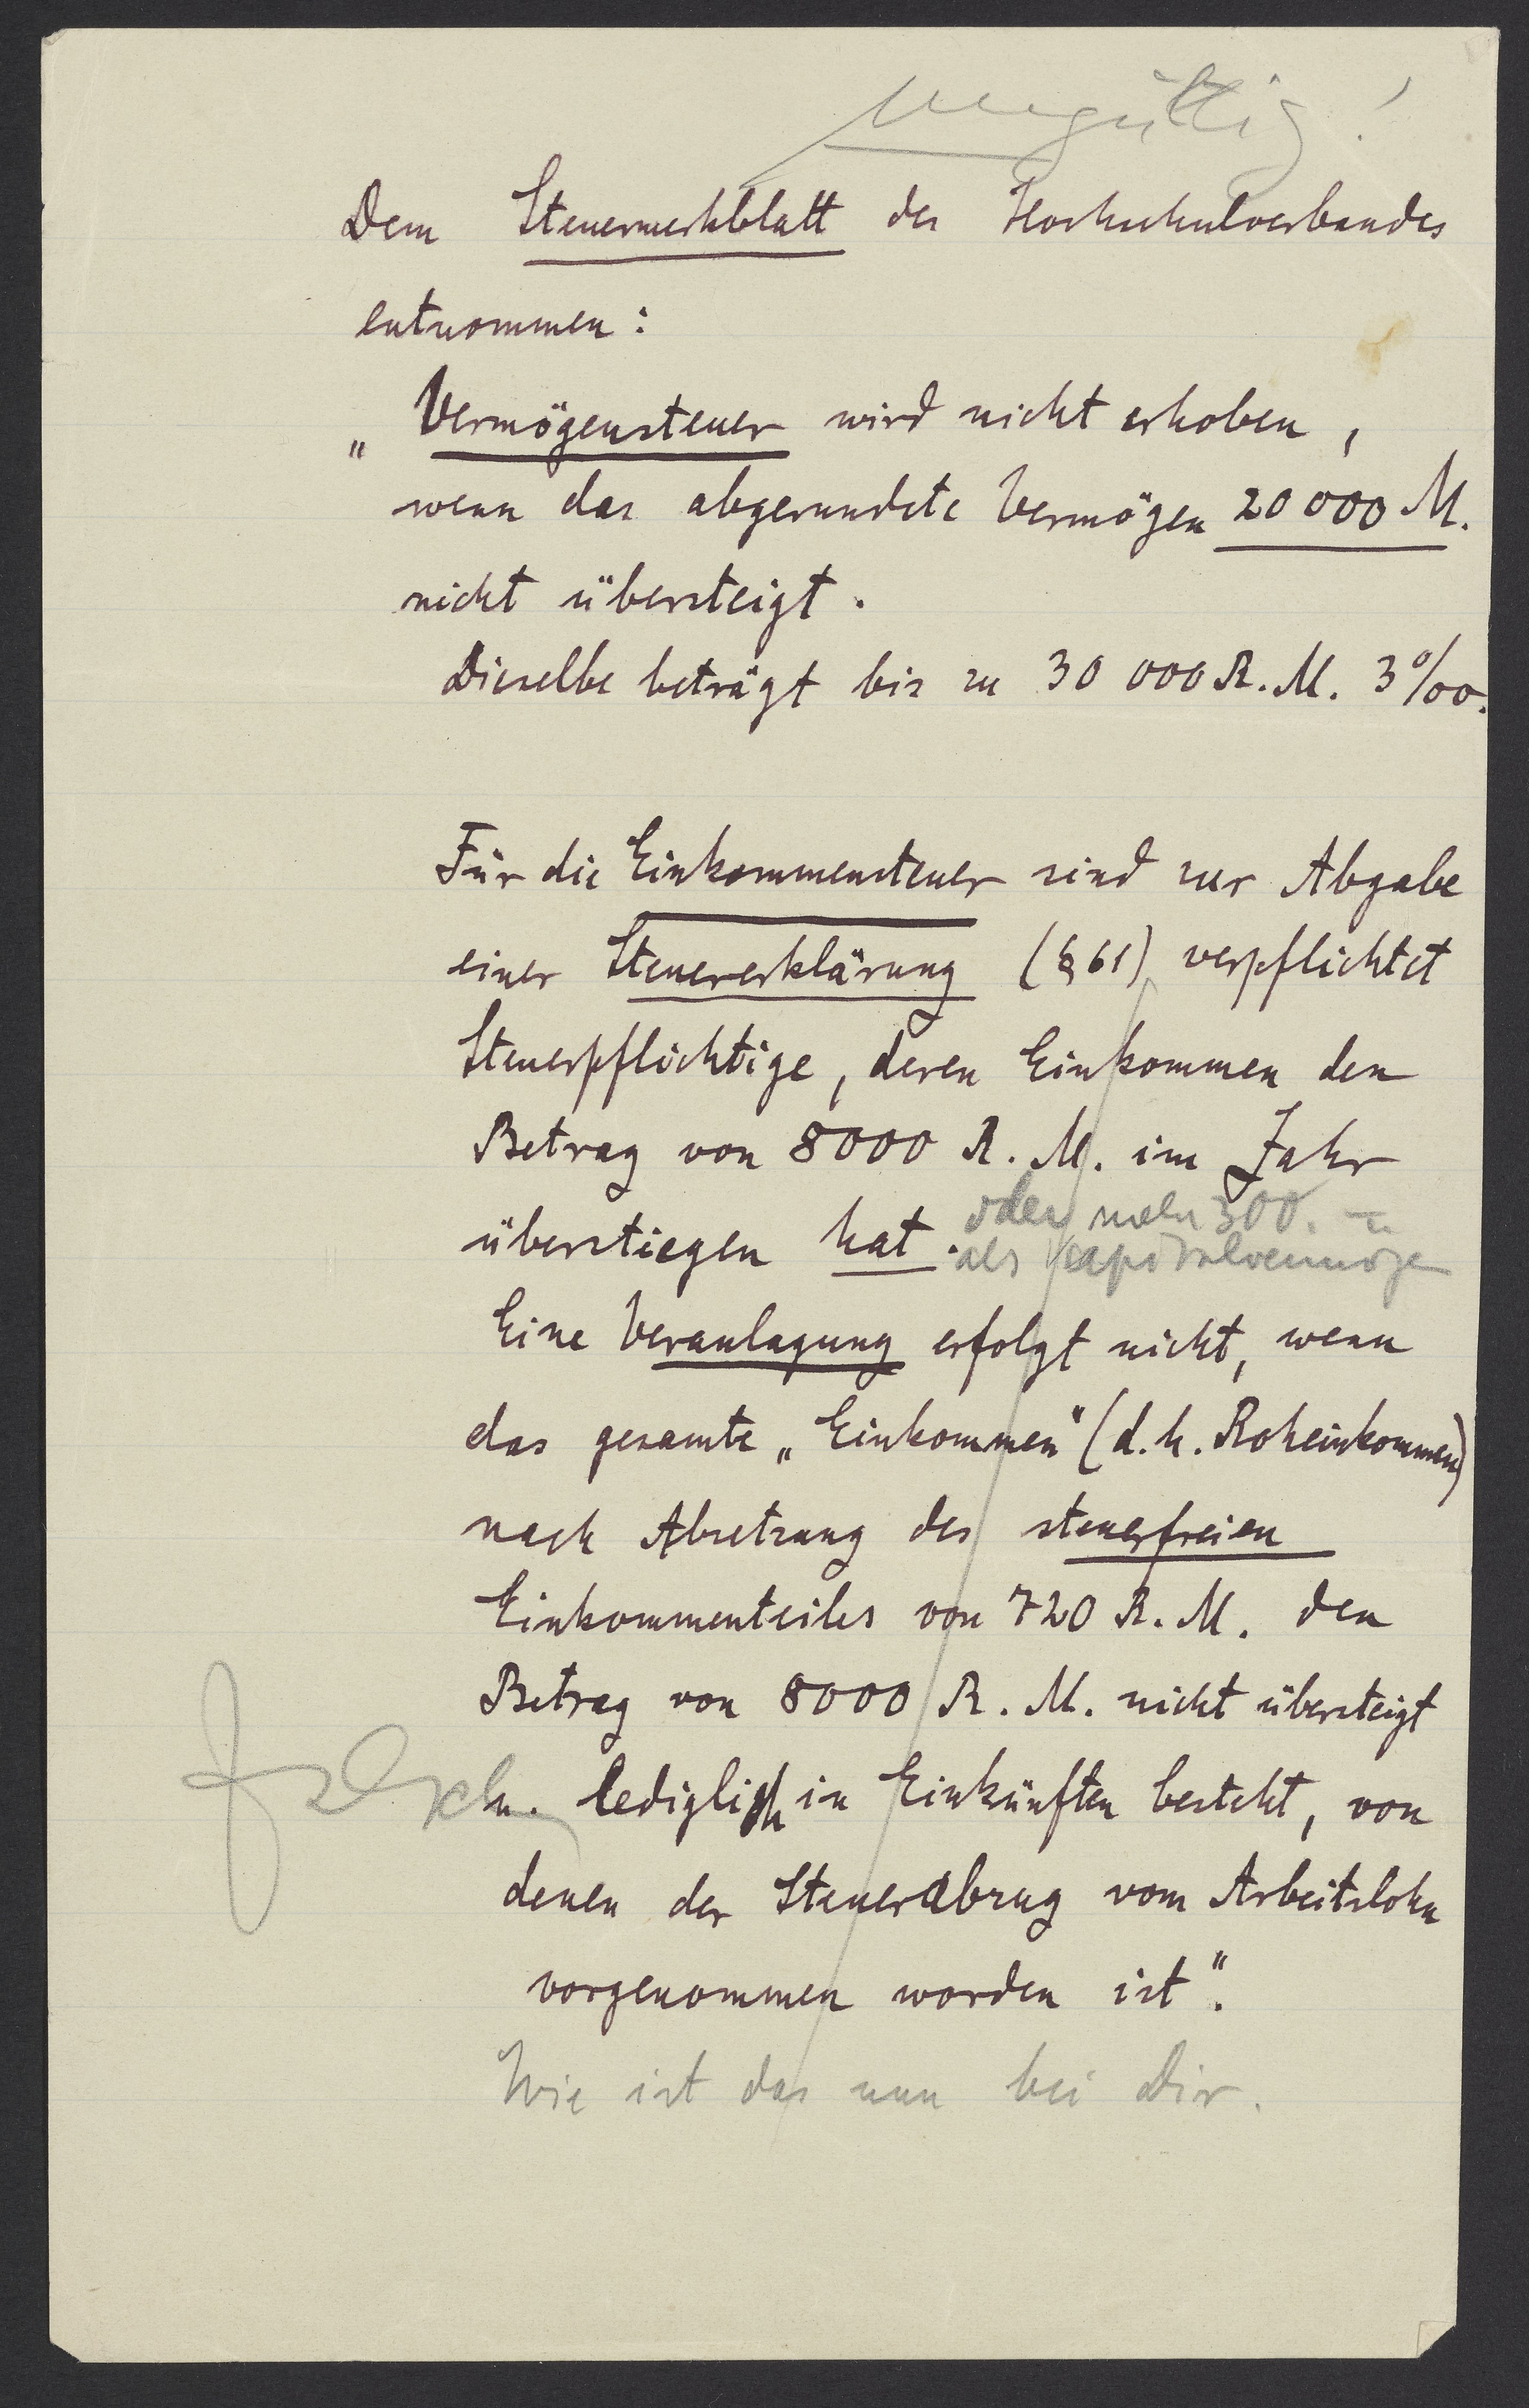 ungültig!
Dem Steuermerkblatt des Hochschulverbandes
entnommen:
„Vermögensteuer wird nicht erhoben,
wenn das abgerundete Vermögen 20 000 M.
nicht übersteigt.
Dieselbe beträgt bis zu 30 000 R. M. 3‰.
Für die Einkommensteuer sind zur Abgabe
einer Steuererklärung (§ 61) verpflichtet
Steuerpflichtige, deren Einkommen den
Betrag von 8000 R. M. im Jahr
überstiegen hat.
oder mehr 300.
als Kapitalvermögen
Eine Veranlagung erfolgt nicht, wenn
das gesamte „Einkommen" (d. h. Roheinkommen)
nach Absetzung des steuerfreien
Einkommenteiles von 720 R. M. den
Betrag von 8000 R. M. nicht übersteigt
falsch
u. lediglich in Einkünften besteht, von
denen der Steuerabzug vom Arbeitslohn
vorgenommen worden ist".
Wie ist das nun bei Dir.